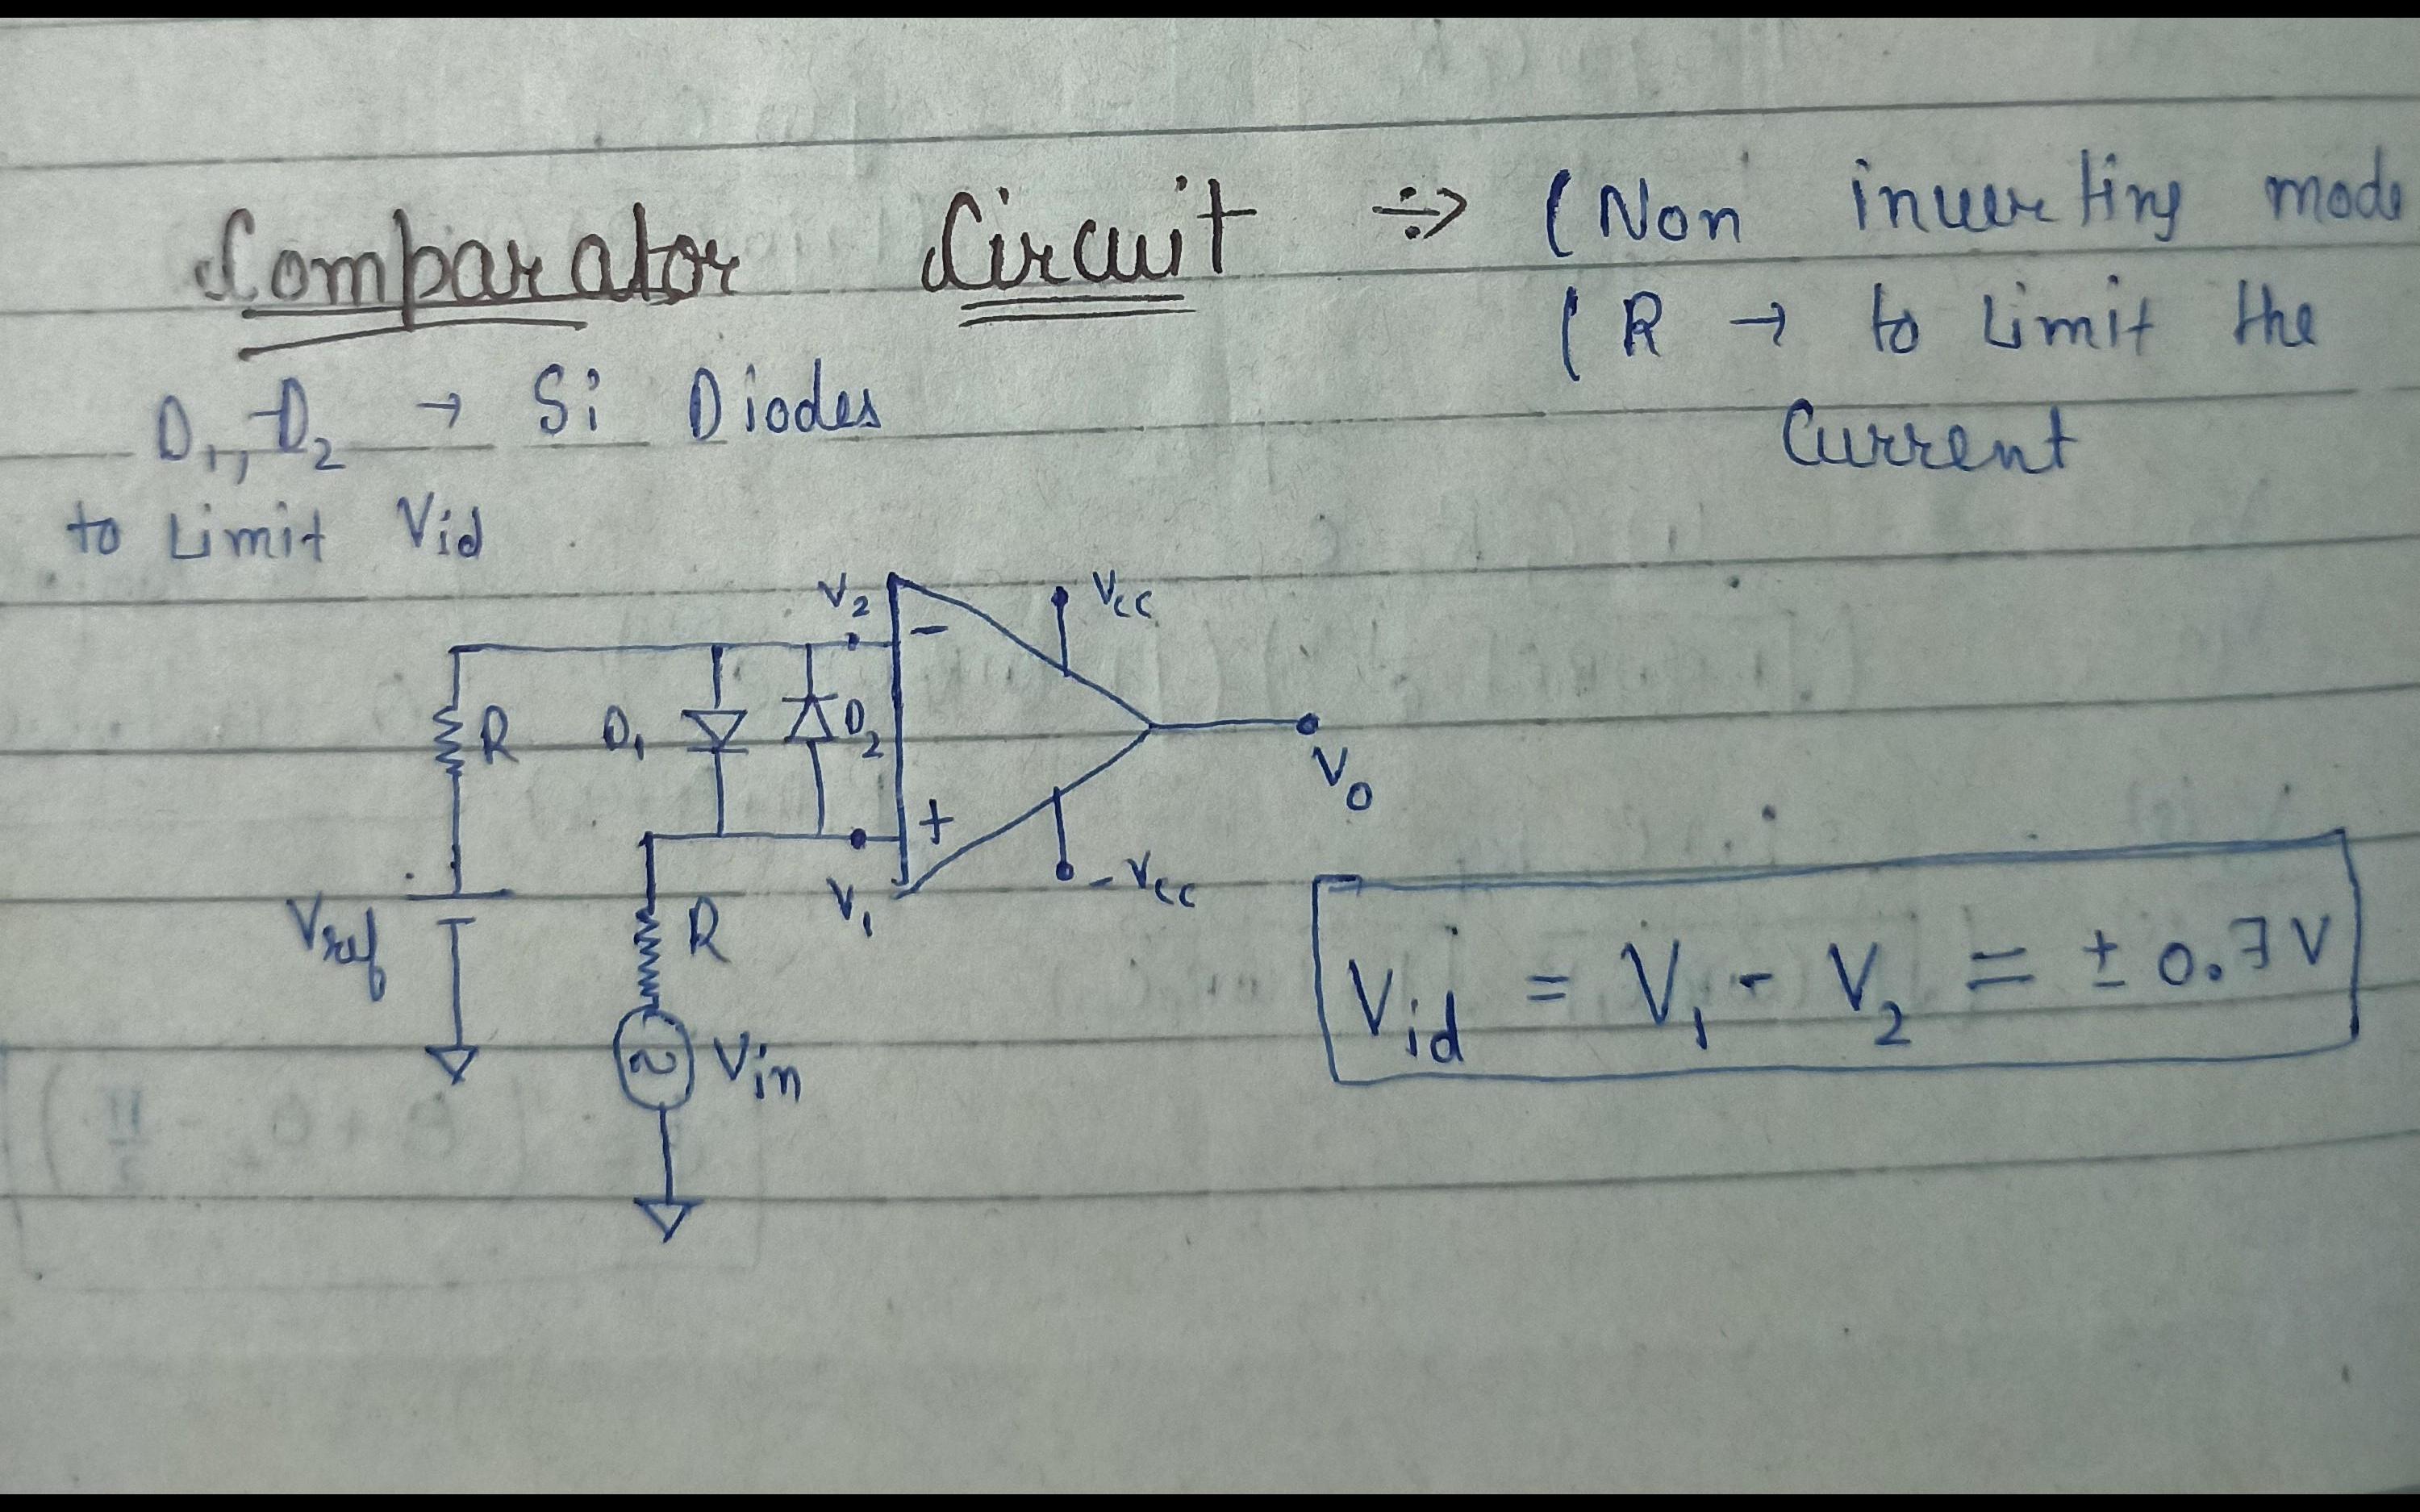 Comparator Circuit ÷> (Non inverting mode
(R → to Limit the
Current
D₁, D₂ → Si Diodes
to Limit Vid
V₂
-
Vcc
R
D₁
D₂
V₀
+
V₁
-Vcc
Vref
R
Vin
Vid = V₁ - V₂ = ± 0.7V